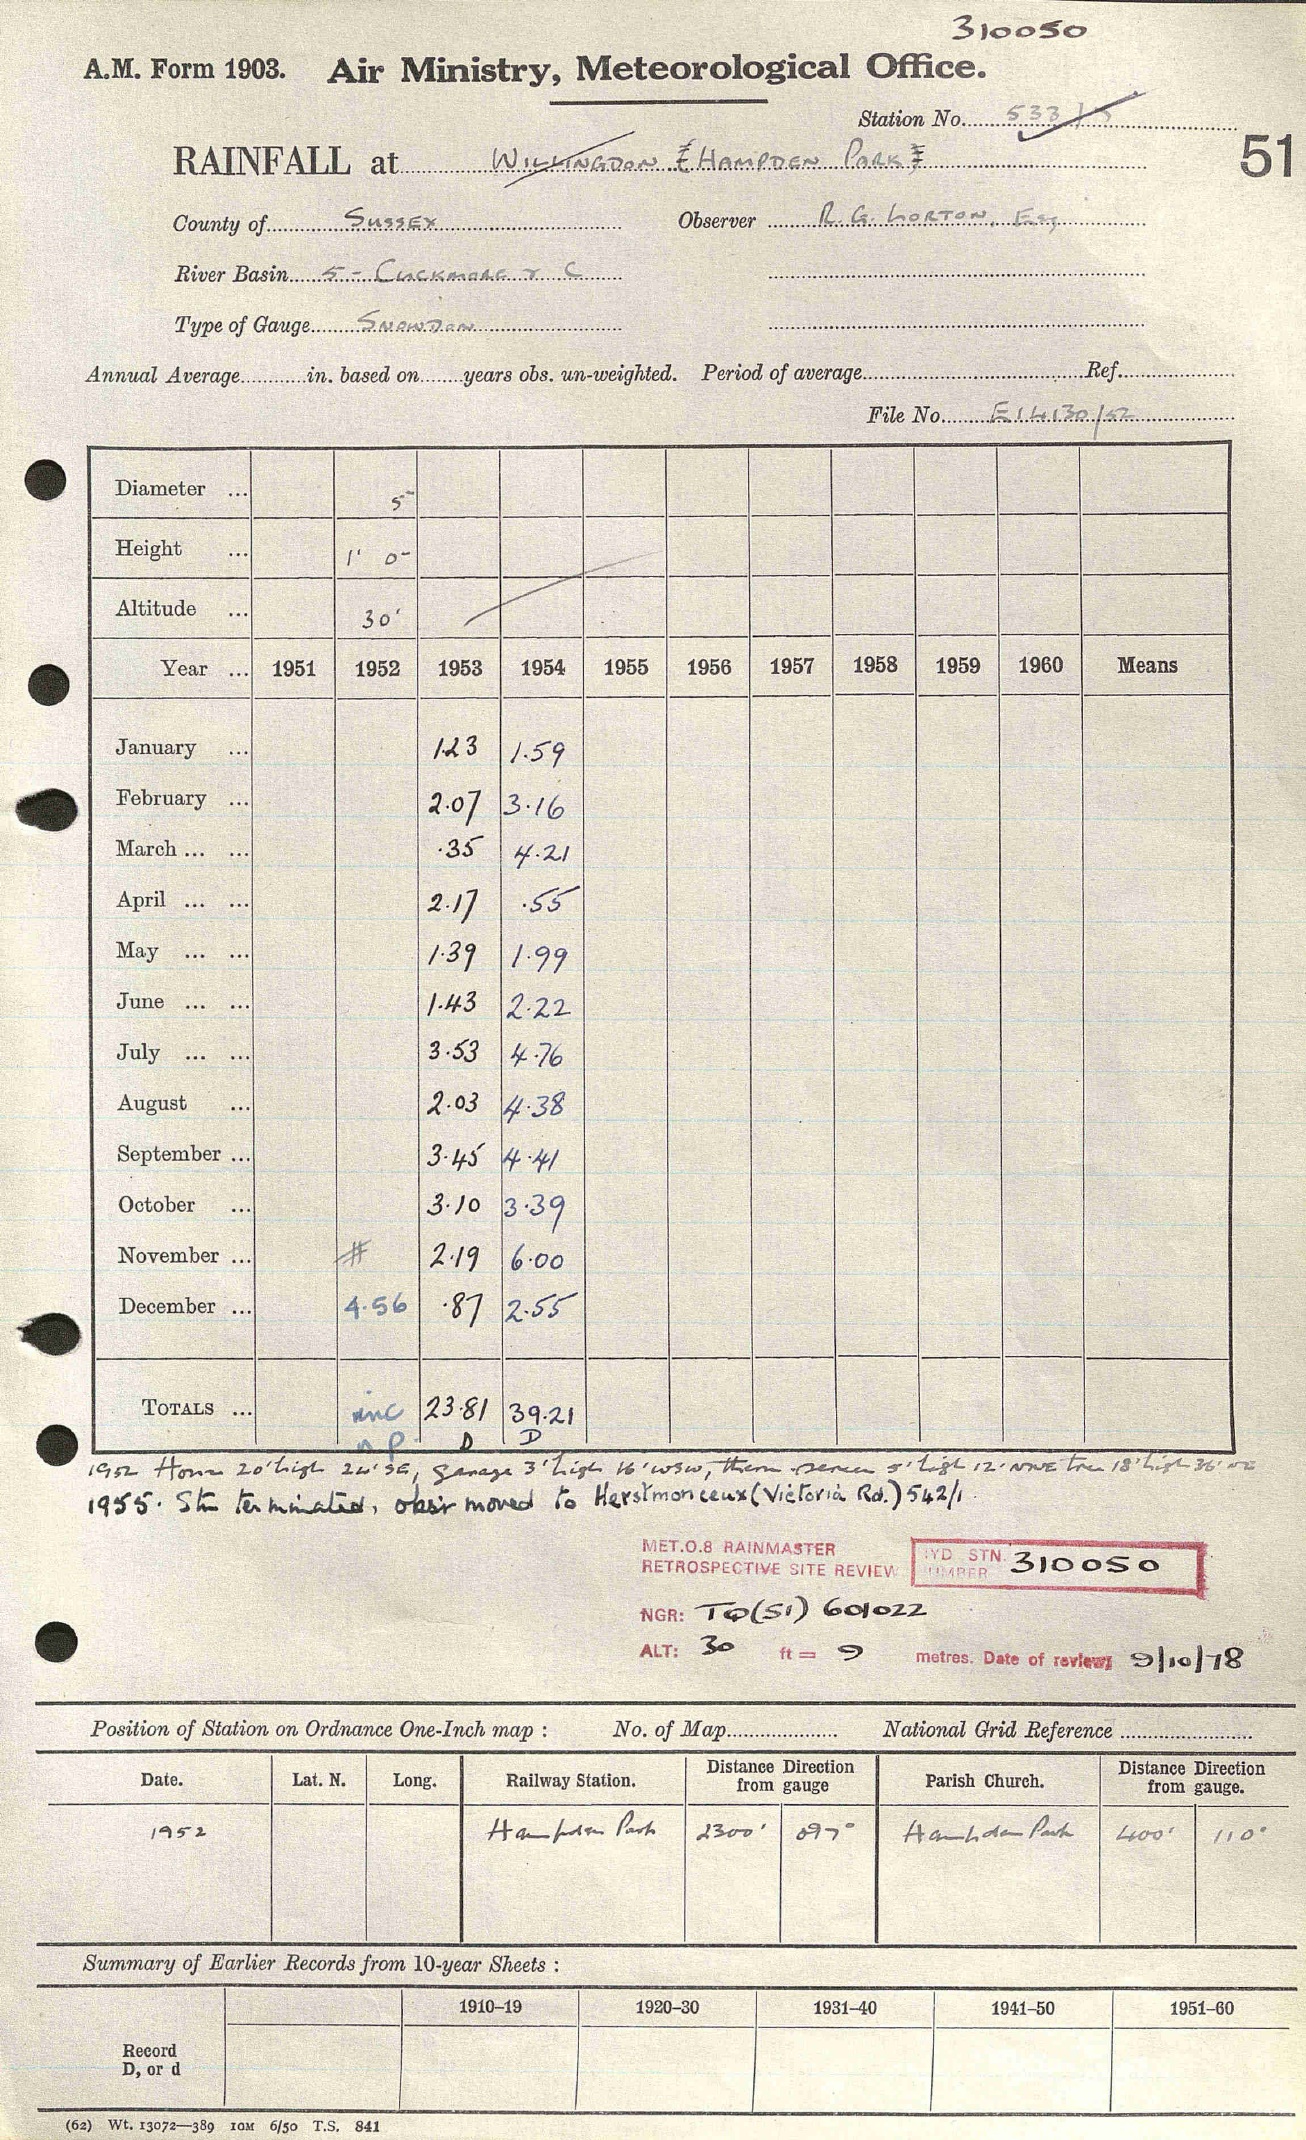 310050
A.M. Form 1903. Air Ministry, Meteorological Office.
Station No. 533/
51
RAINFALL at WILLINGDON [HAMPDEN PARK]
County of SUSSEX Observer R. G. LORTON, Esq
River Basin 5 - CUCKMERE & C
Type of Gauge SNOWDON
Annual Average in. based on years obs. un-weighted. Period of average Ref.
File No. E14130/52
Diameter ... 5"
Height ... 1' 0"
Altitude ... 30'
Year ... 1951 1952 1953 1954 1955 1956 1957 1958 1959 1960 Means
January ... 1.23 1.59
February ... 2.07 3.16
March ... ... .35 4.21
April ... ... 2.17 .55
May ... ... 1.39 1.99
June ... ... 1.43 2.22
July ... ... 3.53 4.76
August ... 2.03 4.38
September ... 3.45 4.41
October ... 3.10 3.39
November ... # 2.19 6.00
December ... 4.56 .87 2.55
TOTALS ... inc 23.81 39.21
n p. D D
1952 House 20' high 24' SE, garage 3' high 16' WSW, screen 5' high 12' NNE tree 18' high 36' NE
1955. Stn terminated, obsr moved to Herstmonceux (Victoria Rd.) 542/1
MET.O.8 RAINMASTER
RETROSPECTIVE SITE REVIEW
HYD STN. NUMBER 310050
NGR: TQ(51) 601022
ALT: 30 ft = 9 metres. Date of review: 9/10/78
Position of Station on Ordnance One-Inch map : No. of Map National Grid Reference
Date. Lat. N. Long. Railway Station. Distance Direction from gauge Parish Church. Distance Direction from gauge.
1952 Hampden Park 2300' 097° Hampden Park 400' 110°
Summary of Earlier Records from 10-year Sheets :
1910–19 1920–30 1931–40 1941–50 1951–60
Record
D, or d
(62) Wt. 13072—389 10M 6/50 T.S. 841